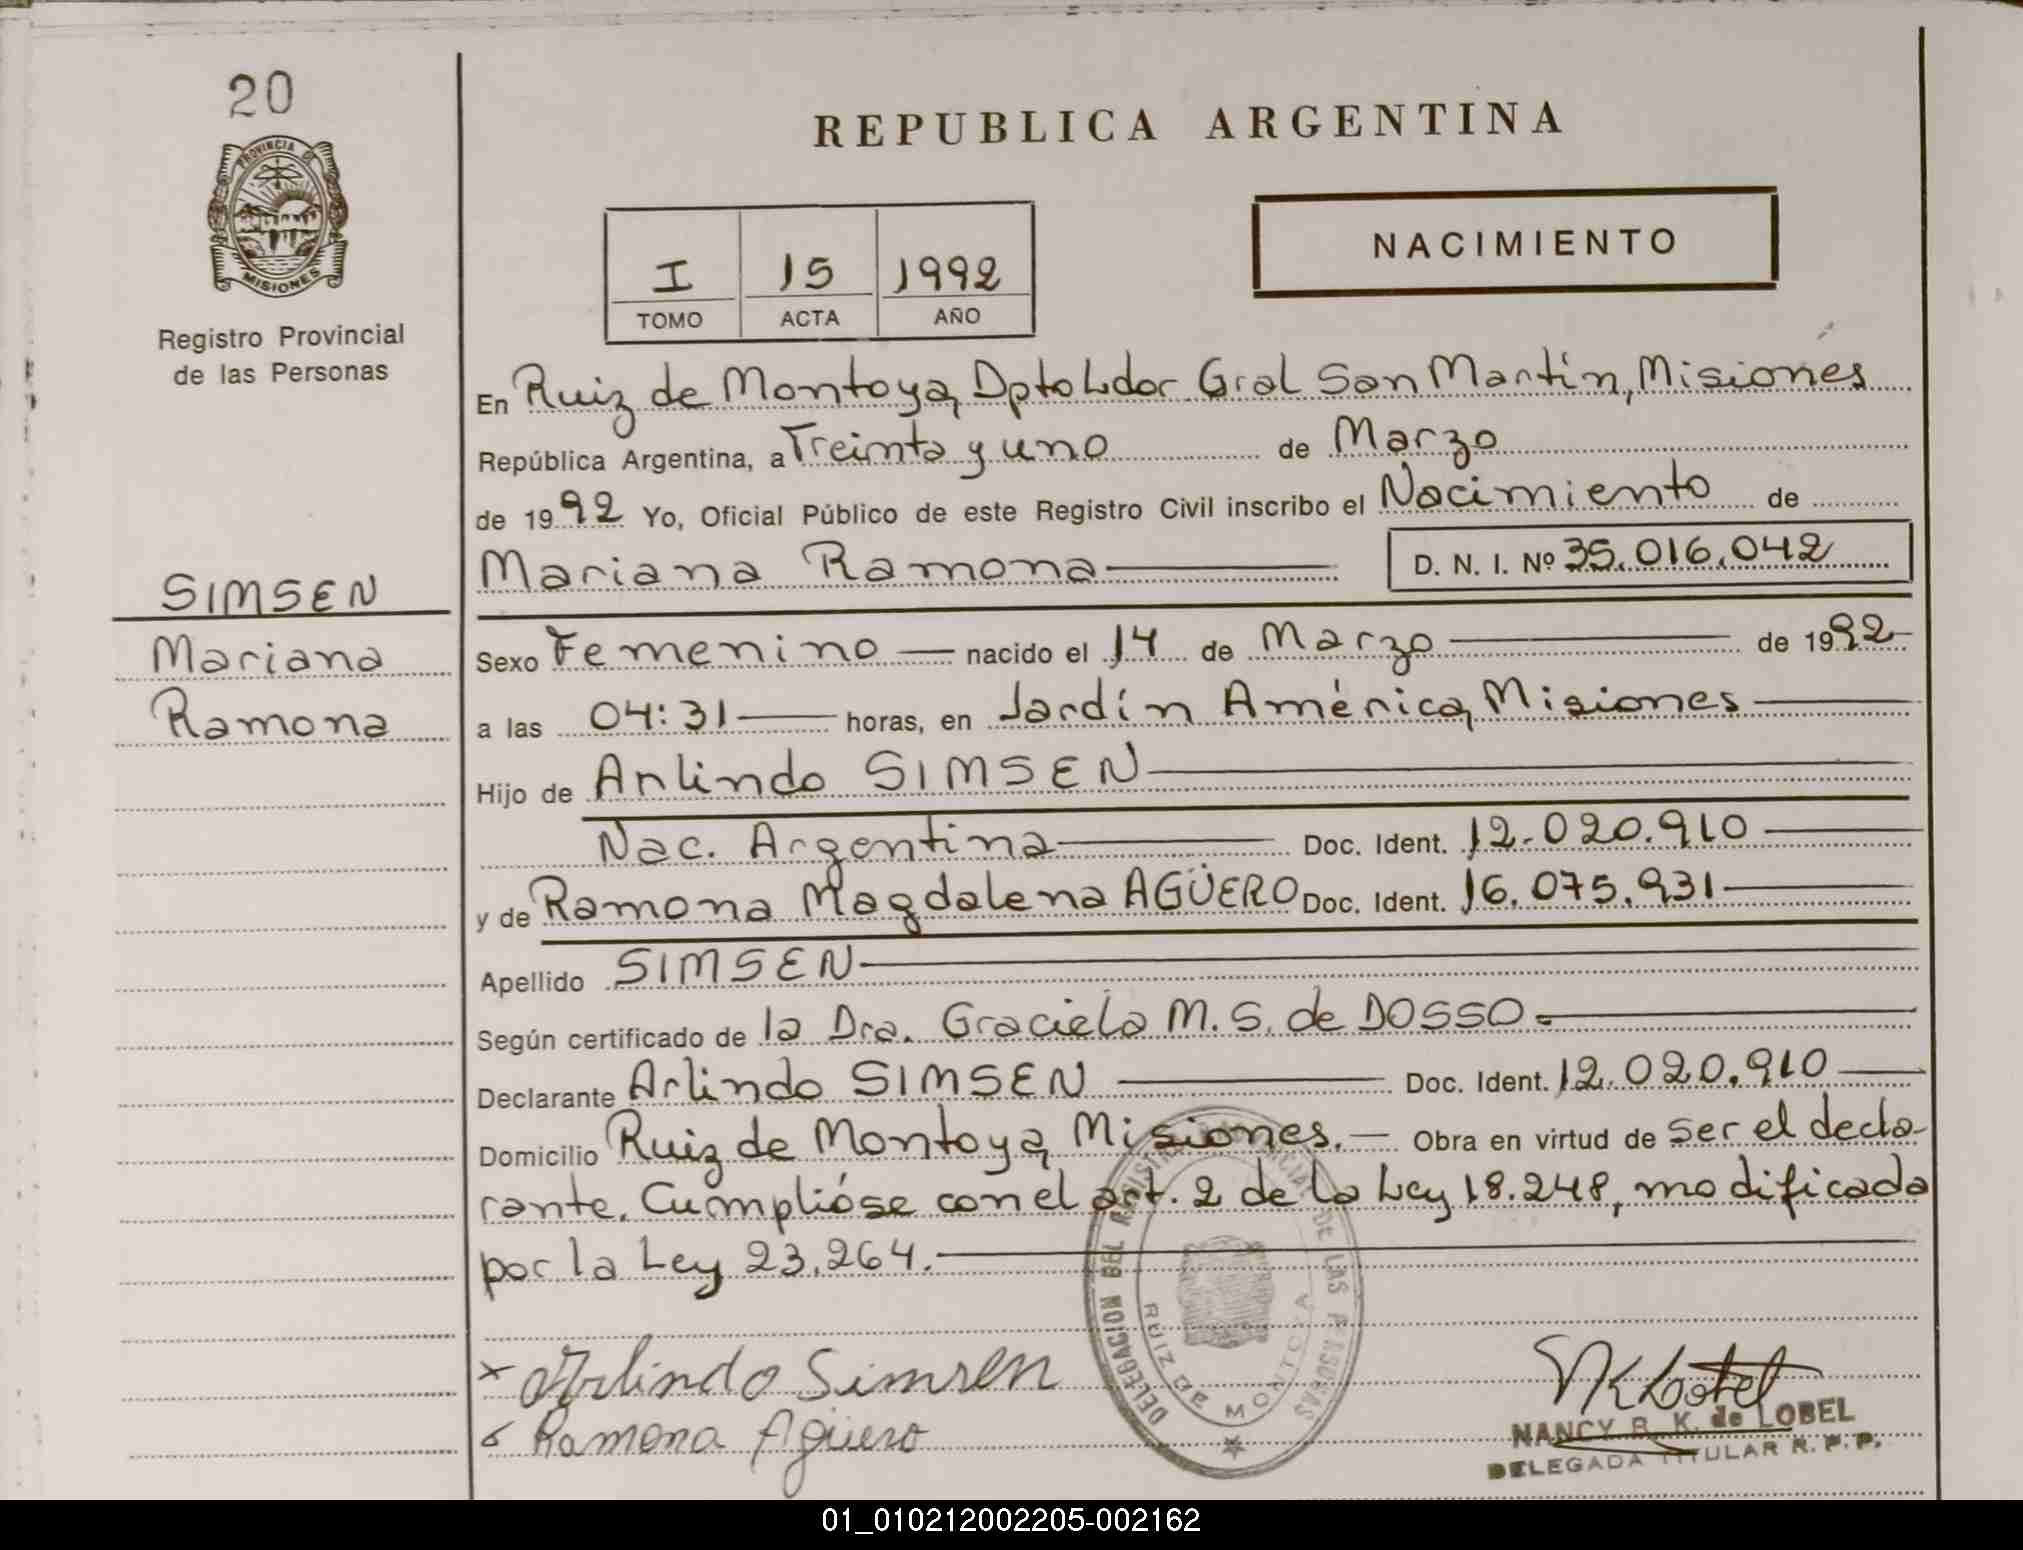 20
PROVINCIA DE
MISIONES
Registro Provincial
de las Personas
SIMSEN
Mariana
Ramona
REPUBLICA ARGENTINA
I 15 1992
TOMO ACTA AÑO
NACIMIENTO
En Ruiz de Montoya, Dpto Ldor. Gral San Martín, Misiones
República Argentina, a Treinta y uno de Marzo
de 1992 Yo, Oficial Público de este Registro Civil inscribo el Nacimiento de
Mariana Ramona D. N. I. Nº 35.016.042
Sexo Femenino nacido el 14 de Marzo de 1992
a las 04:31 horas, en Jardín América, Misiones
Hijo de Arlindo SIMSEN
Nac. Argentina Doc. Ident. 12.020.910
y de Ramona Magdalena AGÜERO Doc. Ident. 16.075.931
Apellido SIMSEN
Según certificado de la Dra. Graciela M. S. de DOSSO.
Declarante Arlindo SIMSEN Doc. Ident. 12.020.910
Domicilio Ruiz de Montoya, Misiones. Obra en virtud de ser el decla-
rante. Cumplióse con el art. 2 de la Ley 18.248, modificada
por la Ley 23.264.
DELEGACION DEL REGISTRO PROVINCIAL DE LAS PERSONAS
RUIZ DE MONTOYA
x Arlindo Simsen
Ramona Agüero
NANCY R. K. de LOBEL
DELEGADA TITULAR R. P. P.
01_010212002205-002162